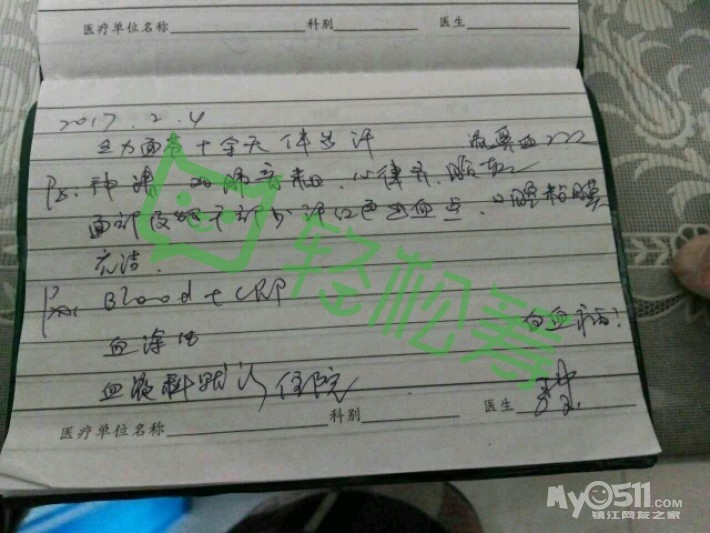 医疗单位名称 科别 医生
2017.2.4
乏力面苍十余天 伴发汗 流鼻血
Pe: 神清 双肺音粗 心律齐
面部及 部 少许红色出血点 口腔粘膜
光洁.
Blood + CRP
白血病?
血涂片
血液科就诊 住院
医疗单位名称 科别 医生
轻松筹
My0511.com
镇江网友之家